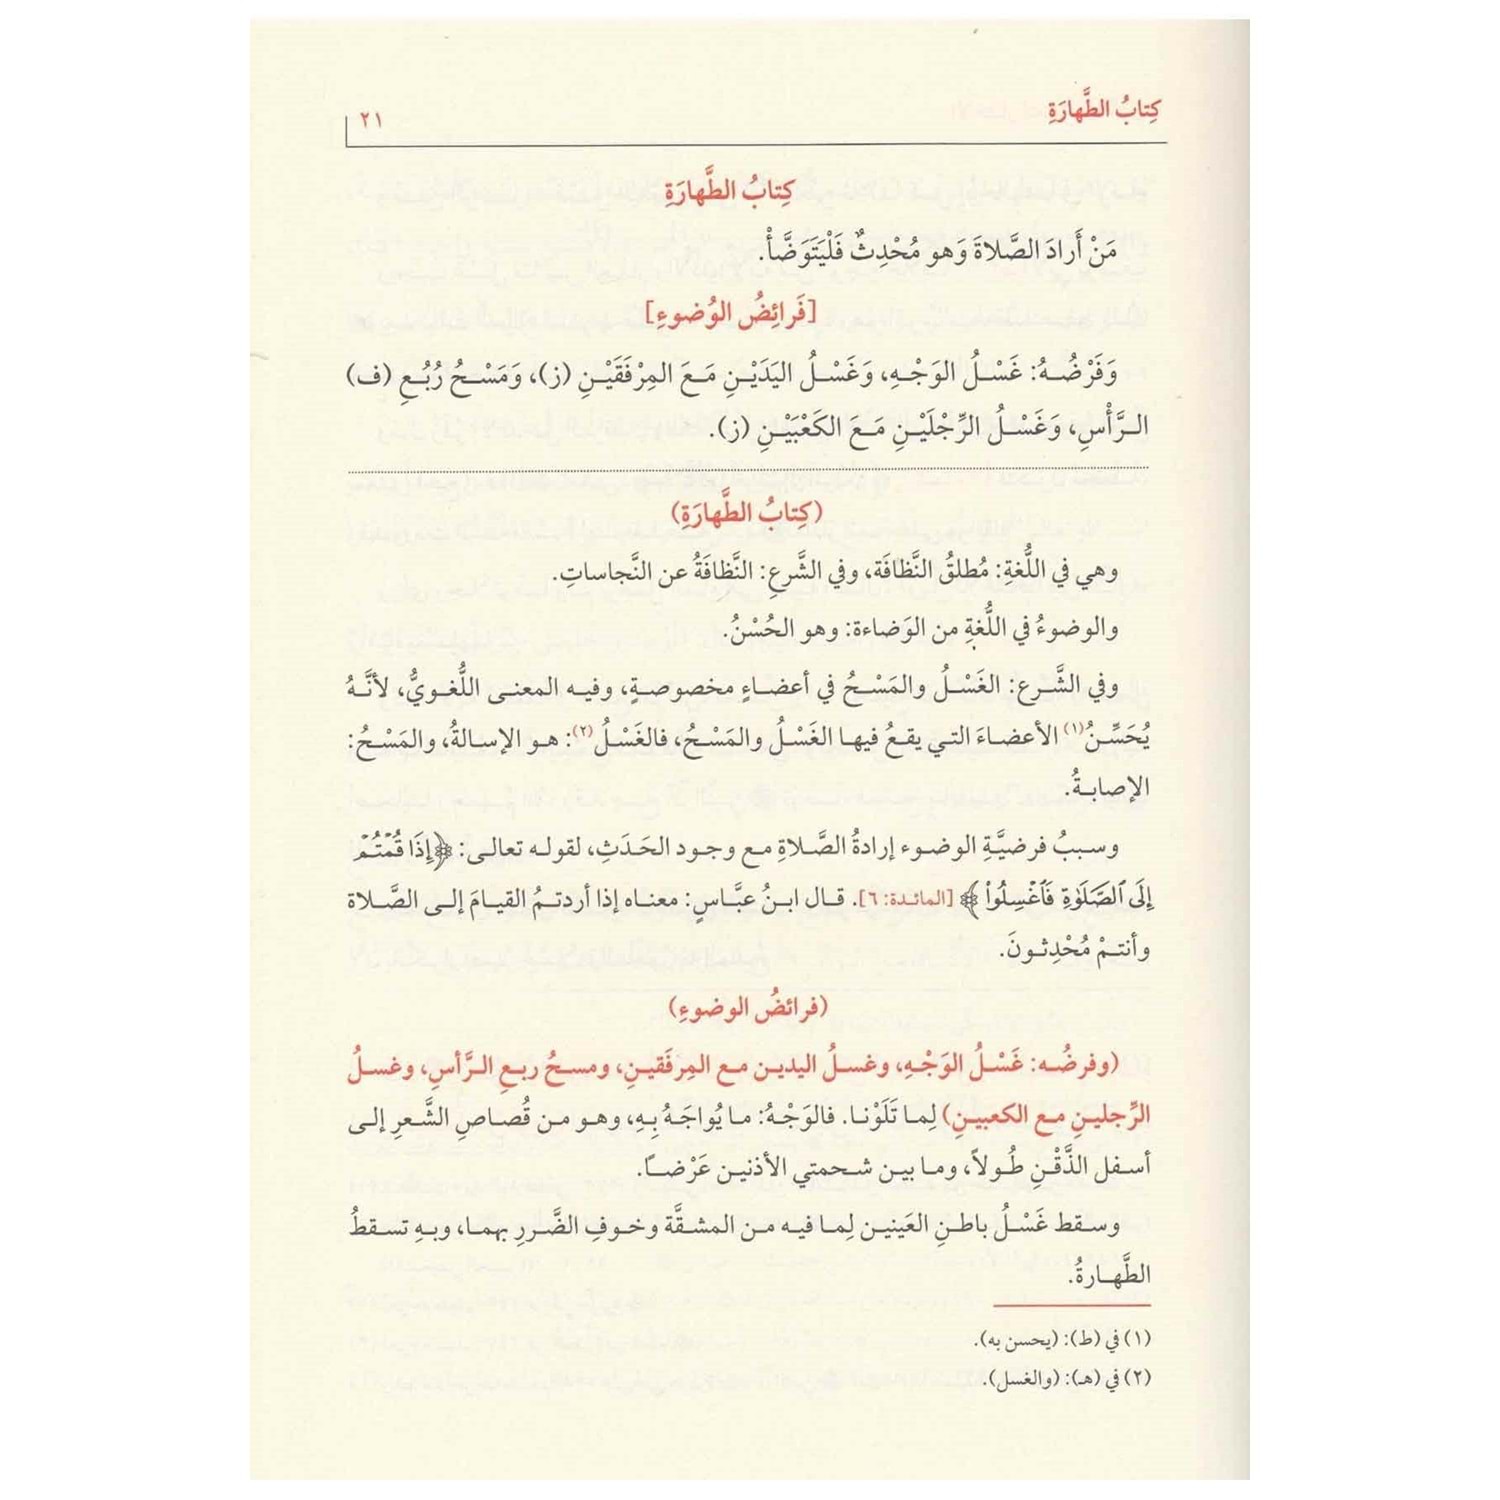 كِتابُ الطَّهارَةِ
٢١
كِتابُ الطَّهارَةِ
مَنْ أَرادَ الصَّلاةَ وَهو مُحْدِثٌ فَلْيَتَوَضَّأْ.
[فَرائِضُ الوُضوءِ]
وَفَرْضُهُ: غَسْلُ الوَجْهِ، وَغَسْلُ اليَدَيْنِ مَعَ المِرْفَقَيْنِ (ز)، وَمَسْحُ رُبُعِ (ف)
الرَّأْسِ، وَغَسْلُ الرِّجْلَيْنِ مَعَ الكَعْبَيْنِ (ز).
(كِتابُ الطَّهارَةِ)
وهي في اللُّغةِ: مُطلقُ النَّظافَة، وفي الشَّرعِ: النَّظافَةُ عن النَّجاساتِ.
والوضوءُ في اللُّغةِ من الوَضاءة: وهو الحُسْنُ.
وفي الشَّرع: الغَسْلُ والمَسْحُ في أعضاءٍ مخصوصةٍ، وفيه المعنى اللُّغويُّ، لأنَّهُ
يُحَسِّنُ(١) الأعضاءَ التي يقعُ فيها الغَسْلُ والمَسْحُ، فالغَسْلُ(٢): هو الإسالةُ، والمَسْحُ:
الإصابةُ.
وسببُ فرضيَّةِ الوضوء إرادةُ الصَّلاةِ مع وجود الحَدَثِ، لقوله تعالى: ﴿إِذَا قُمۡتُمۡ
إِلَى ٱلصَّلَوٰةِ فَٱغۡسِلُواْ﴾ [المائدة: ٦]. قال ابنُ عبَّاسٍ: معناه إذا أردتمُ القيامَ إلى الصَّلاة
وأنتمْ مُحْدِثونَ.
(فرائضُ الوضوءِ)
(وفرضُه: غَسْلُ الوَجْهِ، وغسلُ اليدين مع المِرفَقينِ، ومسحُ ربعِ الرَّأسِ، وغسلُ
الرِّجلينِ مع الكعبينِ) لِما تَلَوْنا. فالوَجْهُ: ما يُواجَهُ بِهِ، وهو من قُصاصِ الشَّعرِ إلى
أسفل الذَّقْنِ طُولاً، وما بين شحمتي الأذنين عَرْضاً.
وسقط غَسْلُ باطنِ العَينين لِما فيه من المشقَّة وخوفِ الضَّررِ بهما، وبهِ تسقطُ
الطَّهارةُ.
(١) في (ط): (يحسن به).
(٢) في (هـ): (والغسل).